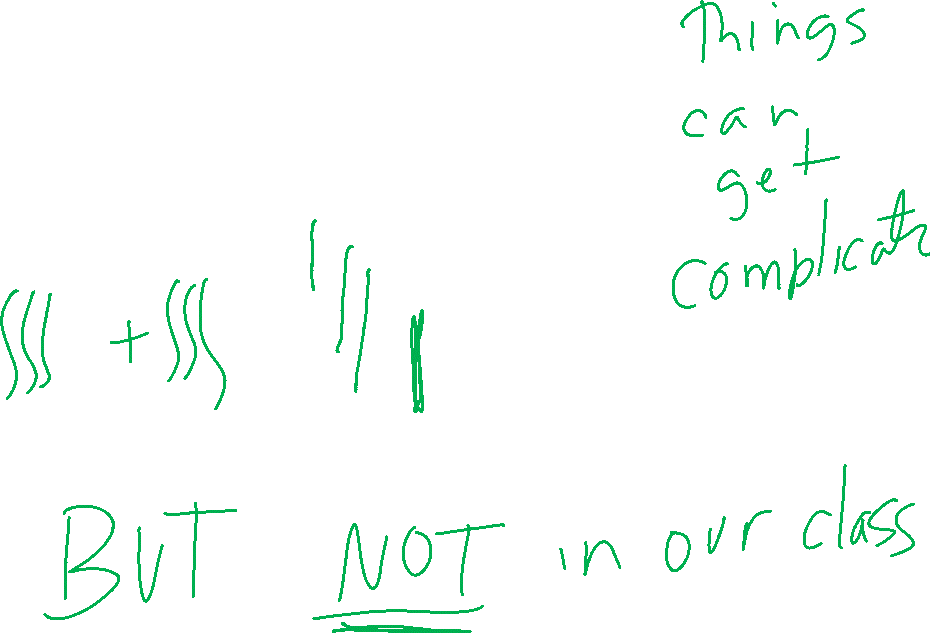 Things
can
get
complicate
∫∫∫ + ∫∫∫
BUT NOT in our class